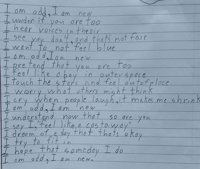 I am odd, I am new
I wonder if you are too
I hear voices in the air
I see you don't, and thats not fair
I want to not feel blue
I am odd, I am new
I pretend that you are too
I feel like a boy in outerspace
I touch the stars and feel out of place
I worry what others might think
I cry when people laugh, it makes me shrink
I am odd, I am new
I understand now that so are you
I say I, feel like a castaway
I dream of a day that thats okay
I try to fit in
I hope that someday I do
I am odd, I am new.